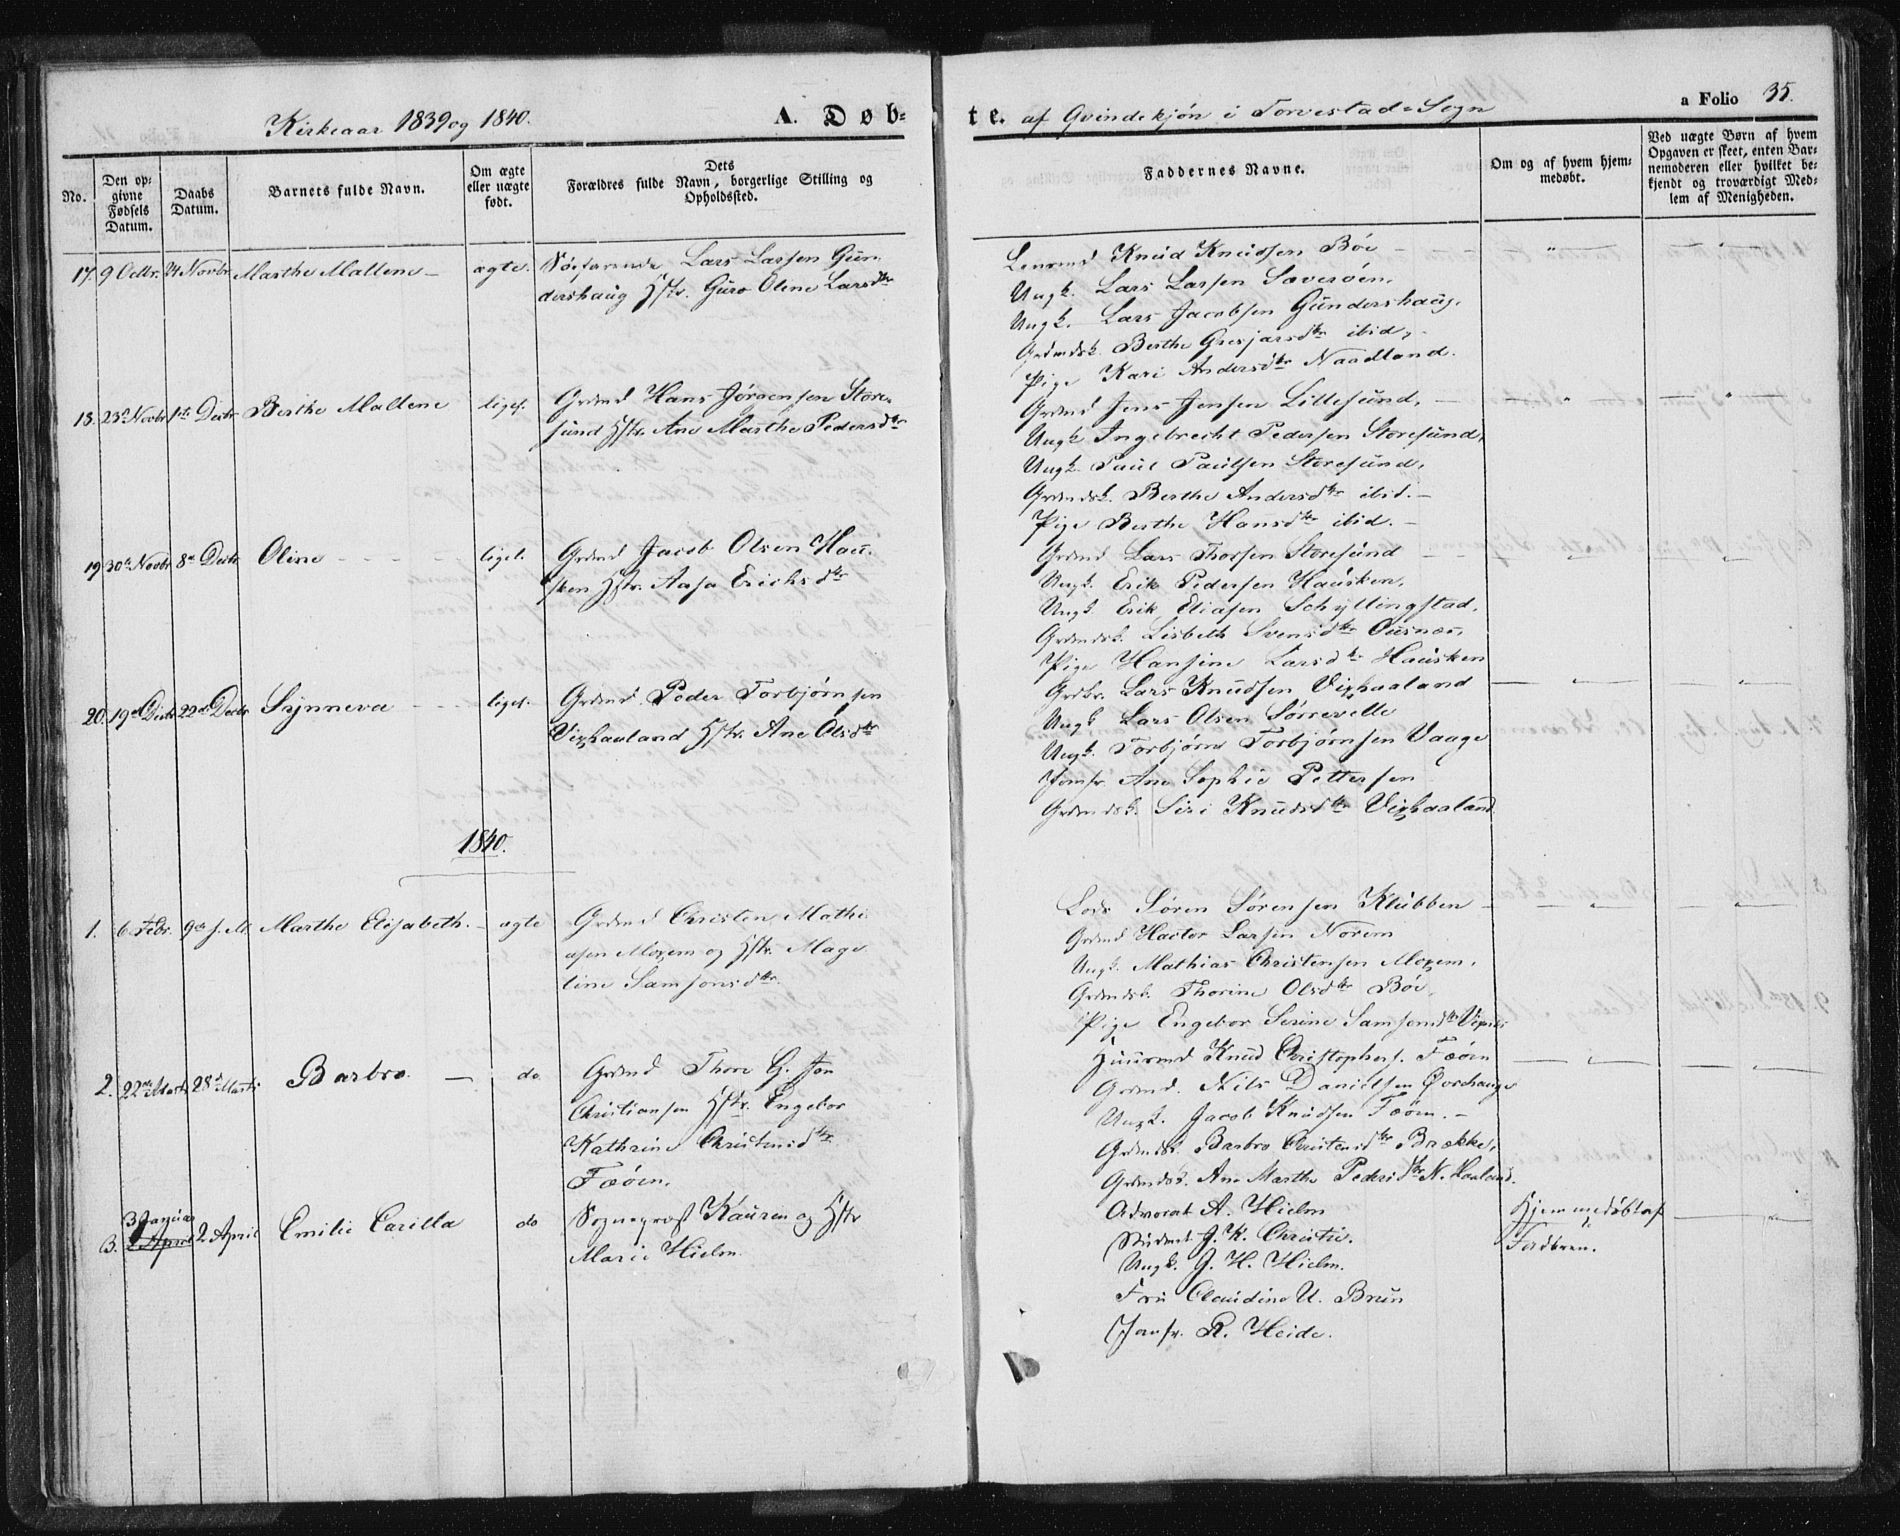 Kirkeaar 1839 og 1840.
A. Døb-
te. af Qvindekjøn i Torvestad-Sogn
a Folio 35.
No.
Den op-
givne
Fødsels
Datum.
Daabs
Datum.
Barnets fulde Navn.
Om ægte
eller uægte
født.
Dets
Forældres fulde Navn, borgerlige Stilling og
Opholdssted.
Faddernes Navne.
Om og af hvem hjem-
medøbt.
Ved uægte Børn af hvem
Opgaven er skeet, enten Bar-
nemoderen eller hvilket be-
kjendt og troværdigt Med-
lem af Menigheden.
17. 9 Octbr. 24 Novbr Marthe Mallene - ægte.
Søefarende Lars Larsen Gun-
dershaug Hstr. Guro Oline Larsdtr
Lensmd Knud Knudsen Böe
Ungk. Lars Larsen Saveröen,
Ungk. Lars Jacobsen Gundershaug,
Grdmdsk. Berthe Gresjarsdtr ibid,
Pige Kari Andersdtr Naadland.
18. 23de Novbr 1ste Decbr Berthe Mallene liges.
Grdmd Hans Jørgensen Store-
sund Hstr. Ane Marthe Pedersdtr
Grdmd Jens Jensen Lillesund,
Ungk Ingebrecht Pedersen Storesund,
Ungk. Paul Paulsen Storesund,
Grdmdsk. Berthe Andersdtr ibid. -
Pige Berthe Hansdtr ibid. -
19 30te Novbr 8de Decbr Oline liges.
Grdmd Jacob Olsen Hau-
sken Hstr. Aasa Erichsdtr
Grdmd Lars Thorsen Storesund
Ungk. Erik Pedersen Hausken,
Ungk. Erik Eliasen Schyllingstad,
Grdmdsk. Lisbeth Svensdtr Ousnæs,
Pige Hansine Larsdtr Hausken
20. 19de Decbr 22de Decbr Synneva liges.
Grdmd Peder Torbjørnsen
Vixhaaland Hstr. Ane Olsdtr
Grdbr. Lars Knudsen Vixhaaland
Ungk Lars Olsen Sörrevelle
Ungk. Torbjörn Torbjörnsen Vaage
Jomfr. Ane Sophie Pettersen
Grdmdsk. Siri Knudsdtr Vixhaaland
1840.
1. 6 Febr. 9de s. M. Marthe Elisabeth. - ægte
Grdmd Christen Mathi-
asen Moxem og Hstr. Mage
line Samsonsdtr.
Lods Sören Sörensen Klubben
Grdmd Hactor Larsen Norem
Ungk. Mathias Christensen Moxem,
Grdmdsk. Thorine Olsdtr Böe,
Pige Engebor Serine Samsonsdtr
2. 22de Marts 28de Marts Barbro. - do
Grdmd Thore G. Jon
Christiansen Hstr. Engebor
Kathrine Christensdtr
Fæöen.
Huusmd Knud Christophers. Fæöen
Grdmd. Nils Danielsen
Ungk. Jacob Knudsen Fæöen. -
Grdmdsk. Barbro Christensdtr Brække,
Grdmdsk. Ane Marthe Pedersdtr N. Haaland.
3. 3 Januar 2 April 2 April Emilie Carilla do
Sognepræst Kauren og Hstr
Marie Hielm.
Advocat A. Hielm
Student J. K. Christie.
Ungk. J. H. Hielm.
Fru Claudine U. Brun
Jomfr. R. Heide.
Hjemmedöbt af
Faderen.